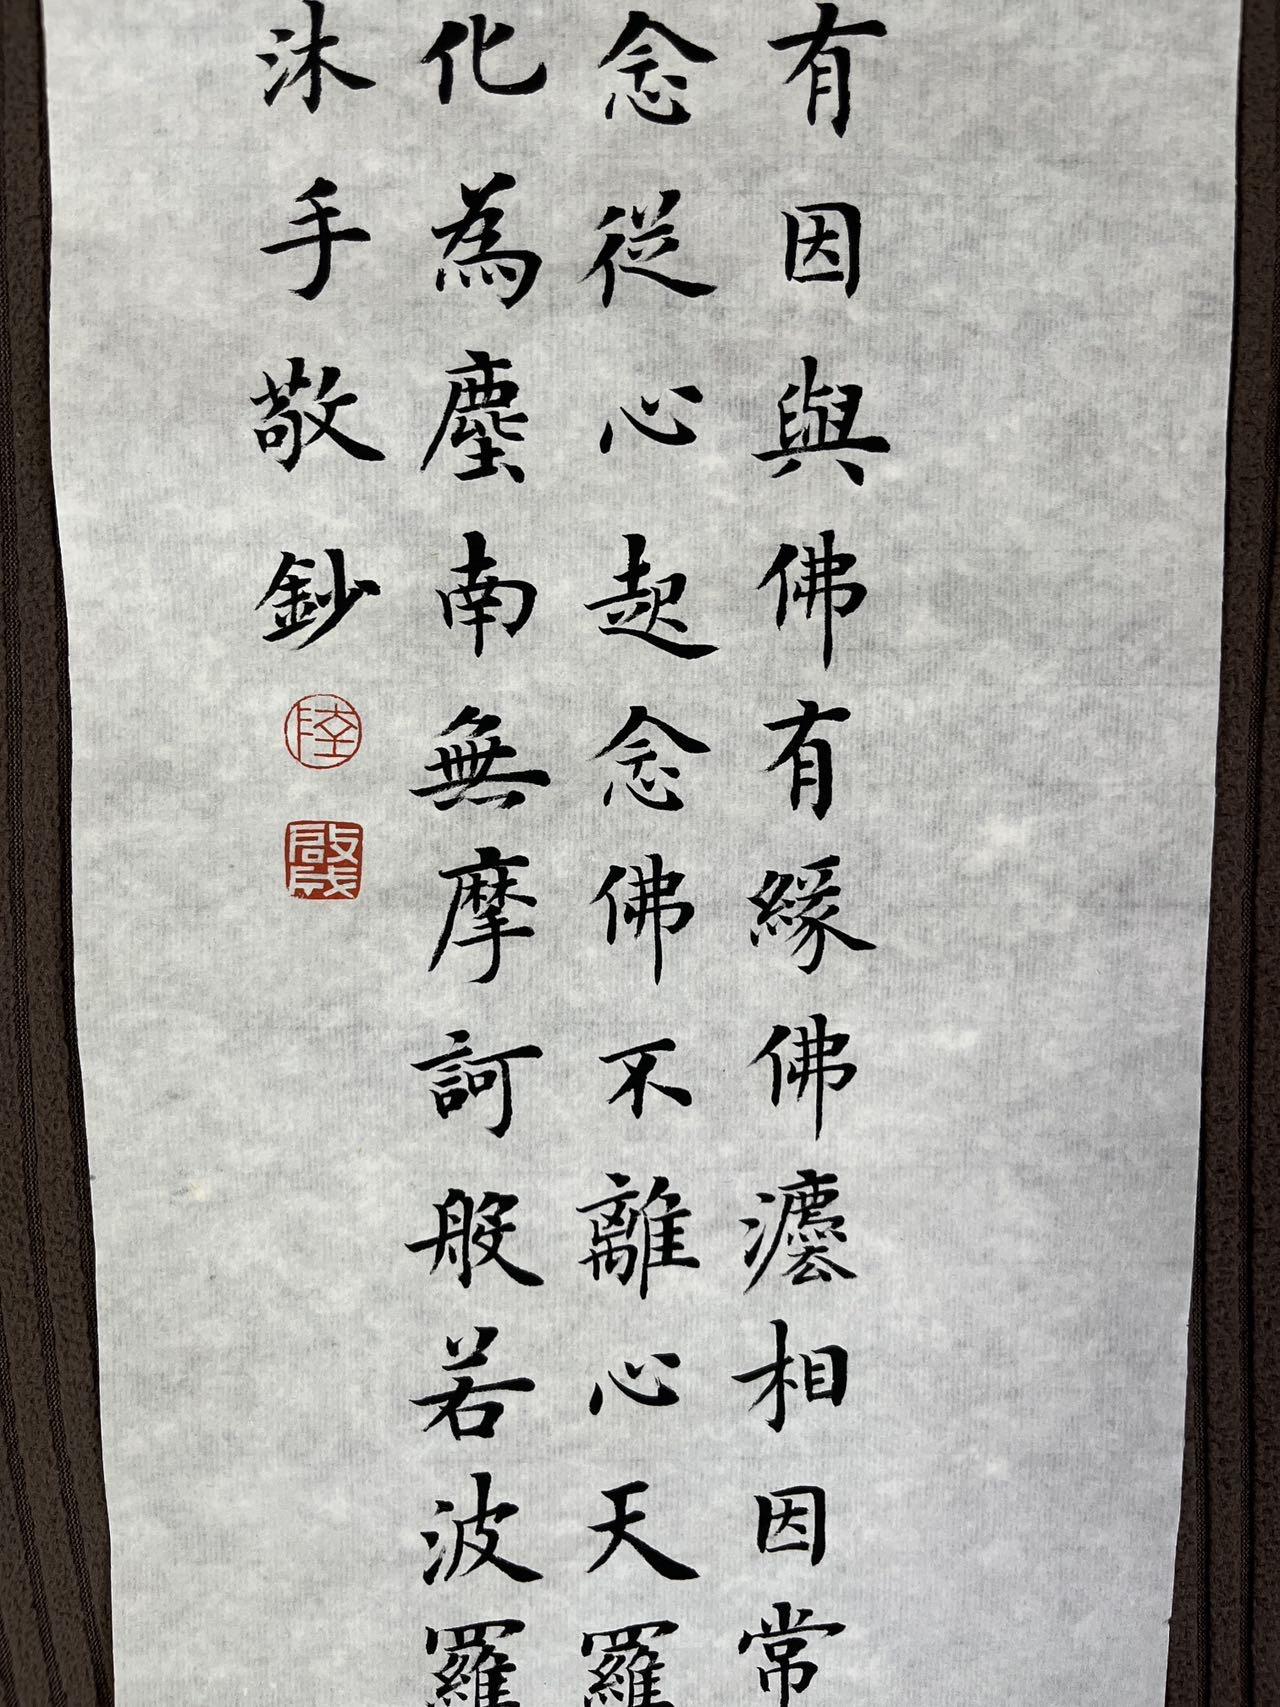 有因與佛有緣佛灋相因常
念從心起念佛不離心天羅
化為塵南無摩訶般若波羅
沐手敬鈔
陸
啟成